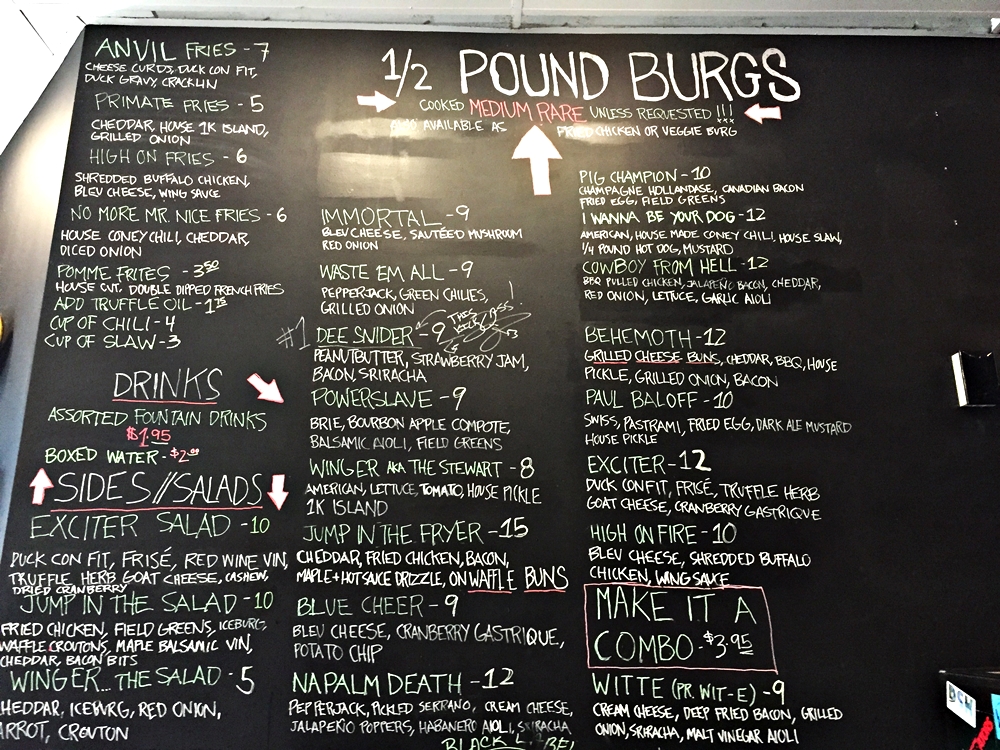 ANVIL FRIES - 7
CHEESE CURDS, DUCK CON FIT,
DUCK GRAVY, CRACKLIN
PRIMATE FRIES - 5
CHEDDAR, HOUSE 1K ISLAND,
GRILLED ONION
HIGH ON FRIES - 6
SHREDDED BUFFALO CHICKEN,
BLEU CHEESE, WING SAUCE
NO MORE MR. NICE FRIES - 6
HOUSE CONEY CHILI, CHEDDAR,
DICED ONION
POMME FRITES - 3.50
HOUSE CUT, DOUBLE DIPPED FRENCH FRIES
ADD TRUFFLE OIL - 1.75
CUP OF CHILI - 4
CUP OF SLAW - 3
DRINKS
ASSORTED FOUNTAIN DRINKS
$1.95
BOXED WATER - $2.00
SIDES//SALADS
EXCITER SALAD - 10
DUCK CON FIT, FRISÉ, RED WINE VIN,
TRUFFLE HERB GOAT CHEESE, CASHEW,
DRIED CRANBERRY
JUMP IN THE SALAD - 10
FRIED CHICKEN, FIELD GREENS, ICEBURG,
WAFFLE CROUTONS, MAPLE BALSAMIC VIN,
CHEDDAR, BACON BITS
WINGER... THE SALAD - 5
HEDDAR, ICEBURG, RED ONION,
ARROT, CROUTON
1/2 POUND BURGS
COOKED MEDIUM RARE UNLESS REQUESTED !!!
ALSO AVAILABLE AS FRIED CHICKEN OR VEGGIE BURG
IMMORTAL - 9
BLEU CHEESE, SAUTÉED MUSHROOM
RED ONION
WASTE EM ALL - 9
PEPPERJACK, GREEN CHILIES,
GRILLED ONION
#1 DEE SNIDER - 9 THIS KICKS ASS!
PEANUTBUTTER, STRAWBERRY JAM,
BACON, SRIRACHA
POWERSLAVE - 9
BRIE, BOURBON APPLE COMPOTE,
BALSAMIC AIOLI, FIELD GREENS
WINGER AKA THE STEWART - 8
AMERICAN, LETTUCE, TOMATO, HOUSE PICKLE
1K ISLAND
JUMP IN THE FRYER - 15
CHEDDAR, FRIED CHICKEN, BACON,
MAPLE + HOT SAUCE DRIZZLE, ON WAFFLE BUNS
BLUE CHEER - 9
BLEU CHEESE, CRANBERRY GASTRIQUE,
POTATO CHIP
NAPALM DEATH - 12
PEPPERJACK, PICKLED SERRANO, CREAM CHEESE,
JALAPEÑO POPPERS, HABANERO AIOLI, SRIRACHA
BLACK
PIG CHAMPION - 10
CHAMPAGNE HOLLANDASE, CANADIAN BACON
FRIED EGG, FIELD GREENS
I WANNA BE YOUR DOG - 12
AMERICAN, HOUSE MADE CONEY CHILI, HOUSE SLAW,
1/4 POUND HOT DOG, MUSTARD
COWBOY FROM HELL - 12
BBQ PULLED CHICKEN, JALAPEÑO BACON, CHEDDAR,
RED ONION, LETTUCE, GARLIC AIOLI
BEHEMOTH - 12
GRILLED CHEESE BUNS, CHEDDAR, BBQ, HOUSE
PICKLE, GRILLED ONION, BACON
PAUL BALOFF - 10
SWISS, PASTRAMI, FRIED EGG, DARK ALE MUSTARD
HOUSE PICKLE
EXCITER - 12
DUCK CONFIT, FRISÉ, TRUFFLE HERB
GOAT CHEESE, CRANBERRY GASTRIQUE
HIGH ON FIRE - 10
BLEU CHEESE, SHREDDED BUFFALO
CHICKEN, WING SAUCE
MAKE IT A
COMBO - $3.95
WITTE (PR. WIT-E) - 9
CREAM CHEESE, DEEP FRIED BACON, GRILLED
ONION, SRIRACHA, MALT VINEGAR AIOLI